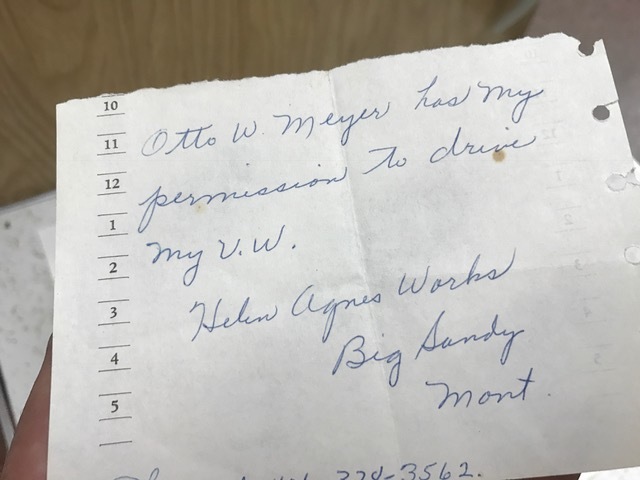 10
11 Otto W. Meyer has my
12 permission to drive
1
my V.W.
2
3 Helen Agnes Works
4 Big Sandy
5 Mont.
378-3562.